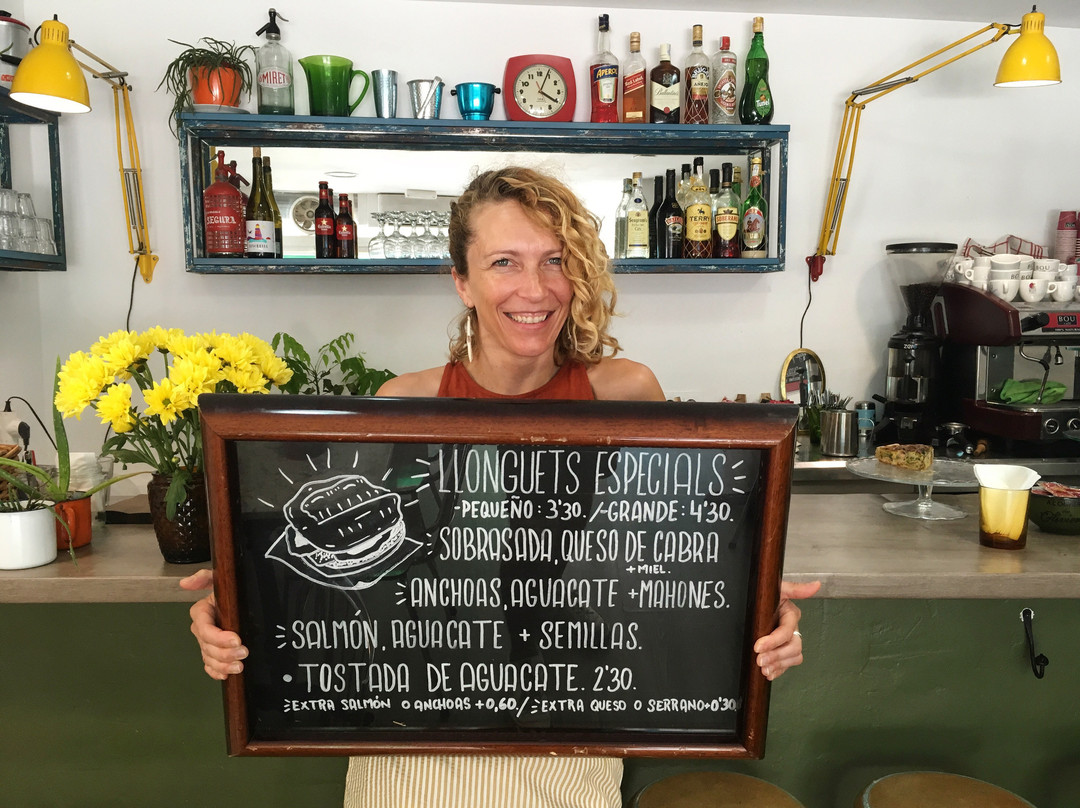 MIRET
APEROL
Red Label
Ballantine's
AÑEJO
SEGURA
TERRY
BOU
BOU
LLONGUETS ESPECIALS
-PEQUEÑO: 3'30. /-GRANDE: 4'30.
SOBRASADA, QUESO DE CABRA
+ MIEL.
ANCHOAS, AGUACATE + MAHONES.
SALMÓN, AGUACATE + SEMILLAS.
• TOSTADA DE AGUACATE. 2'30.
EXTRA SALMÓN O ANCHOAS +0,60. / EXTRA QUESO O SERRANO+0'30